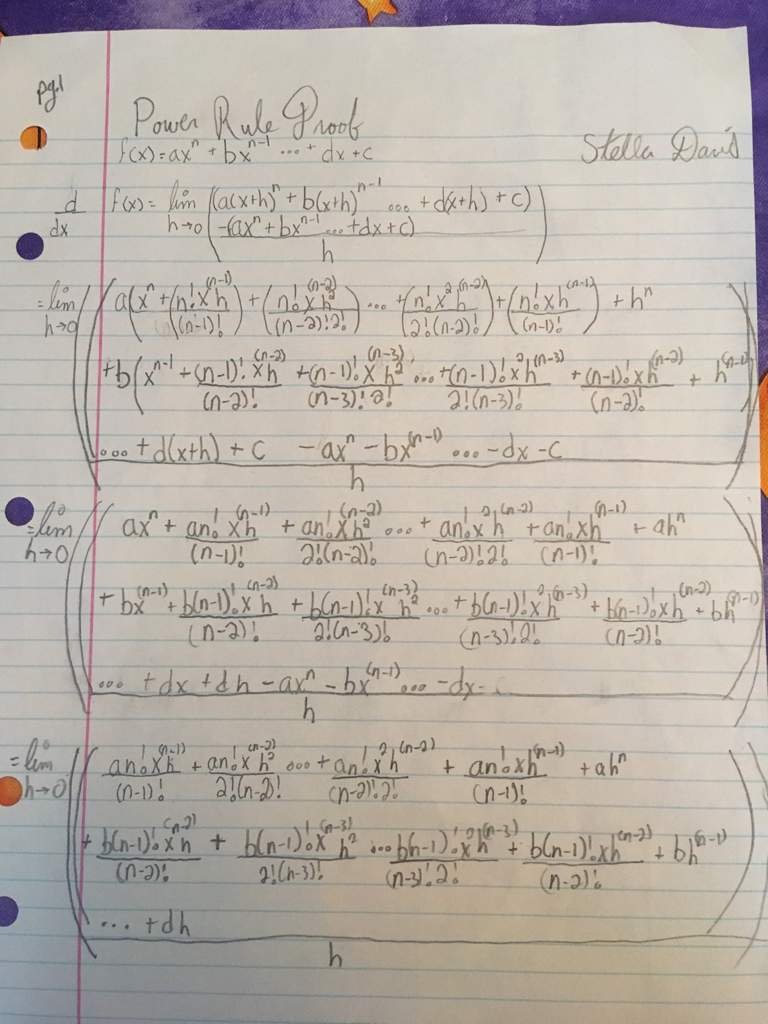 pg.1
Power Rule Proof
f(x)=ax^n + bx^(n-1) ... + dx + c
Stella Davis
d/dx f(x) = lim h→0 ((a(x+h)^n + b(x+h)^(n-1) ... + d(x+h) + c)
-(ax^n + bx^(n-1) ... + dx + c)
h
= lim h→0 ((a(x^n + (n!x^(n-1)h/(n-1)!) + (n!x^(n-2)h^2/(n-2)!2!) ... + (n!x^2h^(n-2)/2!(n-2)!) + (n!xh^(n-1)/(n-1)!) + h^n
+ b(x^(n-1) + (n-1)!x^(n-2)h/(n-2)! + (n-1)!x^(n-3)h^2/(n-3)!2! ... + (n-1)!x^2h^(n-3)/2!(n-3)! + (n-1)!xh^(n-2)/(n-2)! + h^(n-1)
... + d(x+h) + c - ax^n - bx^(n-1) ... - dx - c
h
= lim h→0 (( ax^n + an!x^(n-1)h/(n-1)! + an!x^(n-2)h^2/2!(n-2)! ... + an!x^2h^(n-2)/(n-2)!2! + an!xh^(n-1)/(n-1)! + ah^n
+ bx^(n-1) + b(n-1)!x^(n-2)h/(n-2)! + b(n-1)!x^(n-3)h^2/2!(n-3)! ... + b(n-1)!x^2h^(n-3)/(n-3)!2! + b(n-1)!xh^(n-2)/(n-2)! + bh^(n-1)
... + dx + dh - ax^n - bx^(n-1) ... - dx -
h
= lim h→0 (( an!x^(n-1)h/(n-1)! + an!x^(n-2)h^2/2!(n-2)! ... + an!x^2h^(n-2)/(n-2)!2! + an!xh^(n-1)/(n-1)! + ah^n
+ b(n-1)!x^(n-2)h/(n-2)! + b(n-1)!x^(n-3)h^2/2!(n-3)! ... b(n-1)!x^2h^(n-3)/(n-3)!2! + b(n-1)!xh^(n-2)/(n-2)! + bh^(n-1)
... + dh
h